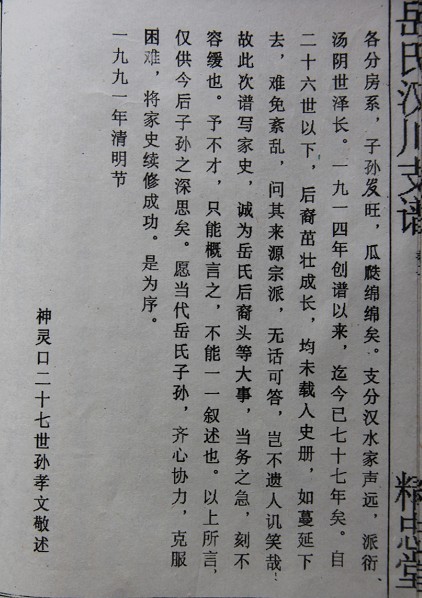 岳氏汉川支谱
精忠堂
各分房系，子孙发旺，瓜瓞绵绵矣。支分汉水家声远，派衍
汤阴世泽长。一九一四年创谱以来，迄今已七十七年矣。自
二十六世以下，后裔茁壮成长，均未载入史册，如蔓延下
去，难免紊乱，问其来源宗派，无话可答，岂不遗人讥笑哉！
故此次谱写家史，诚为岳氏后裔头等大事，当务之急，刻不
容缓也。予不才，只能概言之，不能一一叙述也。以上所言，
仅供今后子孙之深思矣。愿当代岳氏子孙，齐心协力，克服
困难，将家史续修成功。是为序。
一九九一年清明节
神灵口二十七世孙孝文敬述